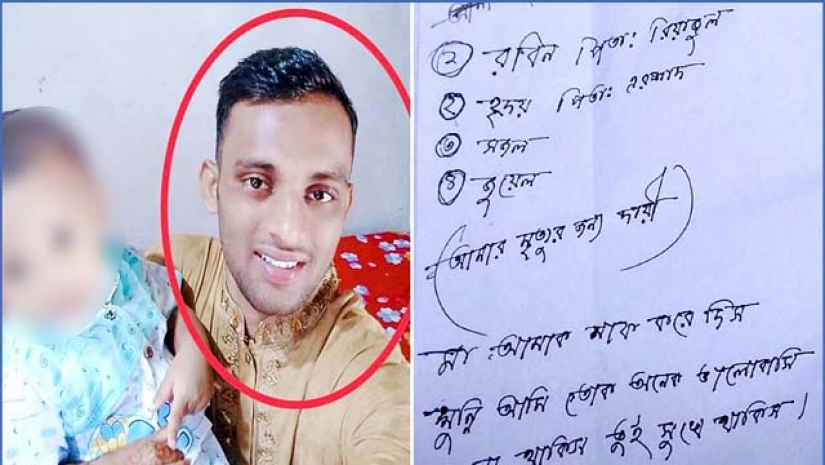 ① রবিন পিতা: রিয়াজুল
② হৃদয় পিতা: এরশাদ
③ সজল
④ জুয়েল
(আমার মৃত্যুর জন্য দায়ী)
মা: আমাক মাফ করে দিস
মুন্নি আমি তোক অনেক ভালোবাসি
থাকিস তুই সুখে থাকিস।